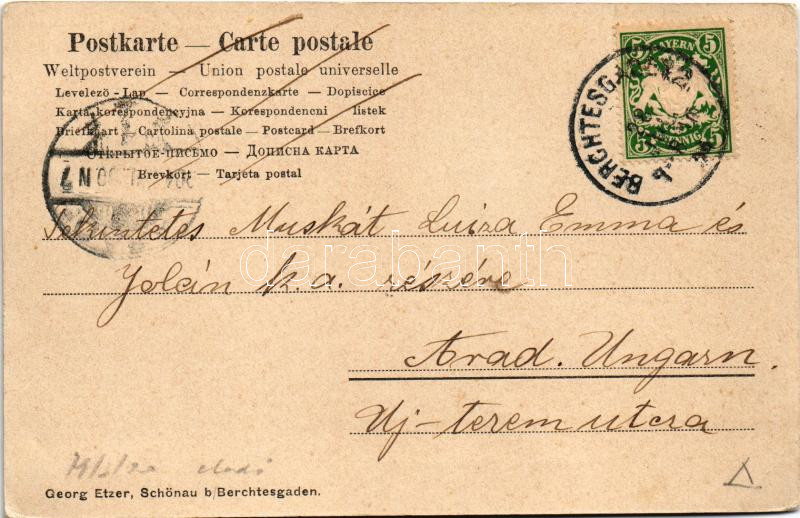 Postkarte — Carte postale
Weltpostverein — Union postale universelle
Levelező-Lap — Correspondenzkarte — Dopiscice
Karta korespondencyjna — Korespondencni listek
Briefkaart — Cartolina postale — Postcard — Brefkort
Открытое-письмо — Дописна карта
Brevkort — Tarjeta postal
BAYERN
5 5
5 PFENNIG 5
BERCHTESGADEN
Tekintetes Muskát Luiza Emma és
Jolán k.a. részére
Arad. Ungarn.
Uj-terem utcza
eladó
Georg Etzer, Schönau b/Berchtesgaden.
darabanth